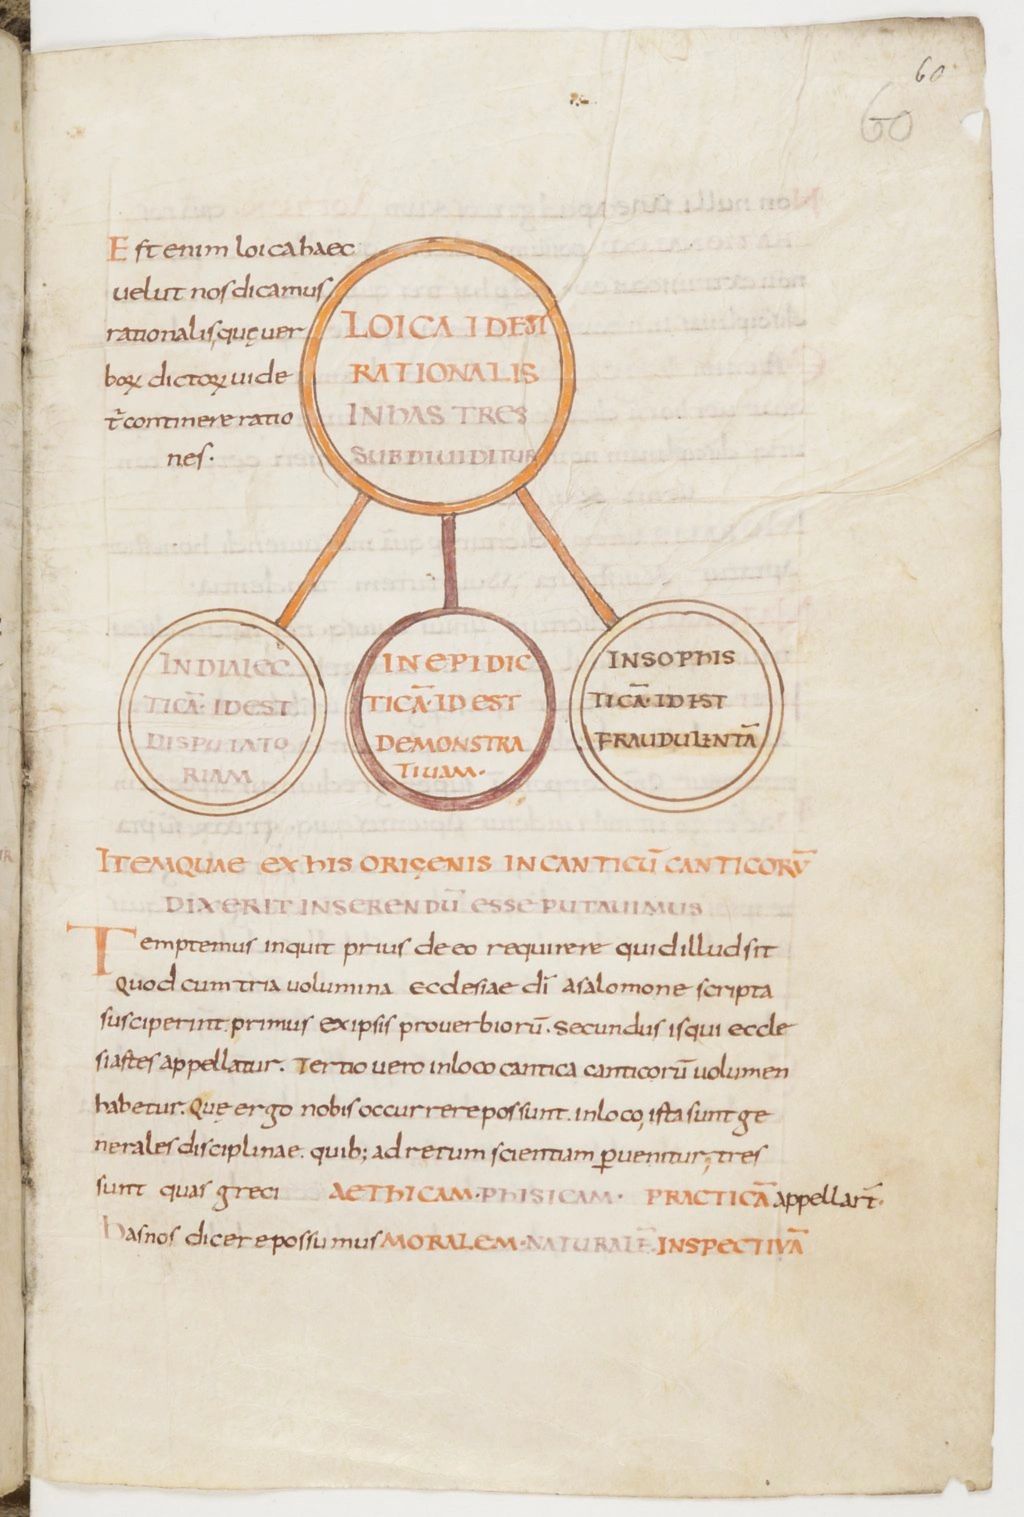 60
60
Est enim loica haec
uelut nos dicamus
rationalis, quę uer
boꝝ dictoꝝ uide
t̄ continere ratio
nes·
LOICA IDEST
RATIONALIS
IN HAS TRES
SUBDIUIDITUR
IN DIALEC
TICĀ· ID EST
DISPUTATO
RIAM
IN EPIDIC
TICĀ· ID EST
DEMONSTRA
TIUAM·
IN SOPHIS
TICĀ· ID EST
FRAUDULENTĀ
ITEM QUAE EX HIS ORIGENIS IN CANTICŪ CANTICORŪ
DIXERIT INSERENDŪ ESSE PUTAUIMUS
Temptemus inquit prius de eo requirere quid illud sit
Quod cum tria uolumina ecclesiae dī a salomone scripta
susciperint. primus ex ipsis prouerbiorū. Secundus is qui eccle
siastes appellatur. Tertio uero in loco cantica canticorū uolumen
habetur. Quę ergo nobis occurrere possunt. in loco, ista sunt ge
nerales disciplinae. quib; ad rerum scientiam ꝑuenitur, tres
sunt quas greci AETHICAM· PHISICAM· PRACTICĀ appellart̄·
has nos dicere possumus MORALEM· NATURALĒ· INSPECTIVĀ